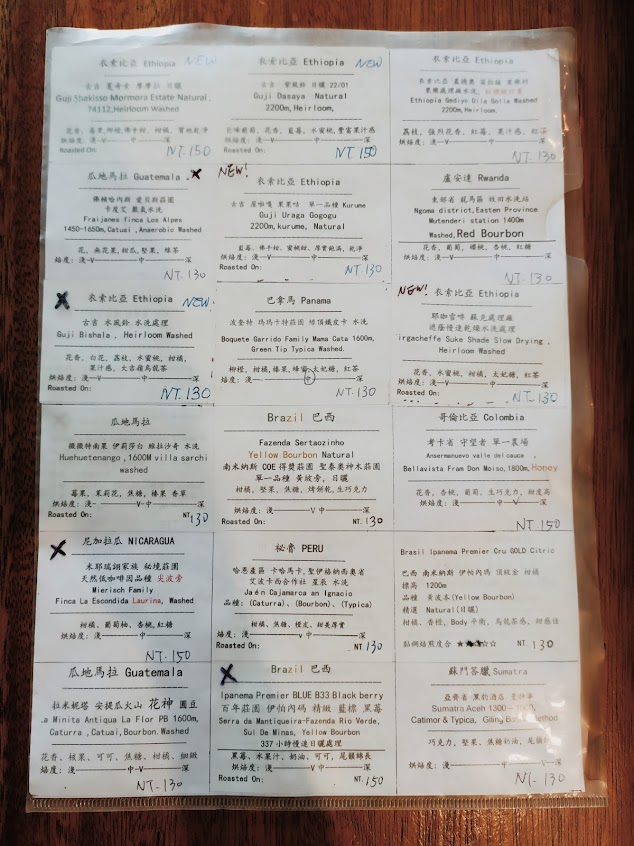 衣索比亞 Ethiopia NEW
古吉 夏奇索 摩摩拉 日曬
Guji Shakisso Mormora Estate Natural
74112,Heirloom Washed
花香, 莓果, 柳橙, 佛手柑, 柑橘, 質地乾淨
Roasted On: NT.150
衣索比亞 Ethiopia NEW
古吉 日曬 22/01
Guji Dasaya Natural
2200m, Heirloom,
巨峰葡萄, 花香, 藍莓, 水蜜桃, 豐富果汁感
Roasted On: NT.150
衣索比亞 Ethiopia
Ethiopia Gediyo Gila Golla Washed
2200m, Heirloom,
荔枝, 強烈花香, 紅莓, 果汁感, 紅茶
NT. 130
瓜地馬拉 Guatemala
佛賴哈內斯 愛貝斯莊園
卡度艾 厭氧水洗
Fraijanes finca Los Alpes
1450-1650m, Catuai, Anaerobic Washed
花, 無花果, 甜瓜, 堅果, 綠茶
烘焙度: 淺-V————中————深
NT. 130
NEW!
衣索比亞 Ethiopia
古吉 屋咖嘎 果果咕 單一品種 Kurume
Guji Uraga Gogogu
2200m, kurume, Natural
藍莓, 佛手柑, 蜜桃甜, 厚實飽滿, 乾淨
烘焙度: 淺-V————中————深
Roasted On: NT.130
盧安達 Rwanda
東部省 龍馬區 牧田水洗站
Ngoma district,Easten Province
Mutenderi station 1400m
Washed,Red Bourbon
花香, 葡萄, 櫻桃, 杏桃, 紅糖
烘焙度: 淺——V——中————深
NT. 130
衣索比亞 Ethiopia NEW
古吉 水風鈴 水洗處理
Guji Bishala , Heirloom Washed
花香, 白花, 荔枝, 水蜜桃, 柑橘,
果汁感, 大吉嶺烏龍茶
烘焙度: 淺—V———中————深
Roasted On: NT.130
巴拿馬 Panama
波奎特 瑪瑪卡特莊園 綠頂鐵皮卡 水洗
Boquete Garrido Family Mama Cata 1600m,
Green Tip Typica Washed.
柳橙, 柑橘, 榛果, 蜂蜜, 太妃糖, 紅茶
烘焙度: 淺-————中————深
NT. 130
NEW!
衣索比亞 Ethiopia
耶加雪啡 蘇克處理廠
遮蔭慢速乾燥水洗處理
irgacheffe Suke Shade Slow Drying ,
Heirloom Washed
花香, 水蜜桃, 柑橘, 太妃糖, 紅茶
烘焙度: 淺—V———中————深
Roasted On: NT. 130
瓜地馬拉
薇薇特南果 伊莉莎白 維拉沙奇 水洗
Huehuetenango , 1600M villa sarchi
washed
莓果, 茉莉花, 焦糖, 榛果 香草
烘焙度: 淺- ————V中————深
Roasted On: NT.130
Brazil 巴西
Fazenda Sertaozinho
Yellow Bourbon Natural
南米納斯 COE 得獎莊園 聖泰奧神木莊園
單一品種 黃波旁, 日曬
柑橘, 堅果, 焦糖, 烤餅乾, 生巧克力
烘焙度: 淺-————V中————深
Roasted On: NT. 130
哥倫比亞 Colombia
考卡省 守望者 單一農場
Ansermanuevo valle del cauca ,
Bellavista Fram Don Moiso,1800m, Honey
花香, 杏桃, 葡萄, 生巧克力, 甜度高
烘焙度: 淺-————中—V———深
NT. 150
尼加拉瓜 NICARAGUA
米耶瑞詡家族 秘境莊園
天然低咖啡因品種 尖波旁
Mierisch Family
Finca La Escondida Laurina, Washed
柑橘, 葡萄柚, 杏桃, 紅糖
烘焙度: 淺————V中————深
NT. 150
秘魯 PERU
哈恩產區 卡哈馬卡, 聖伊格納西奧省
艾波卡西合作社 星辰 水洗
Jaén Cajamarca an Ignacio
品種: (Caturra)、(Bourbon)、(Typica)
柑橘, 焦糖, 橙皮, 甜美厚實
烘焙度: 淺-————v 中————深
NT 130
Brasil Ipanema Premier Cru GOLD Citric
巴西 南米納斯 伊帕內瑪 頂級金 柑橘
標高 1200m
品種 黃波本(Yellow Bourbon)
精選 Natural(日曬)
柑橘, 香橙, Body 平衡, 烏龍茶感, 甜感佳
NT 130
瓜地馬拉 Guatemala
拉米妮塔 安提瓜火山 花神 圓豆
.a Minita Antiqua La Flor PB 1600m,
Caturra ,Catuai,Bourbon. Washed
花香, 核果, 可可, 焦糖, 柑橘, 細緻
烘焙度: 淺-————中-V———深
NT. 130
Brazil 巴西
Ipanema Premier BLUE B33 Black berry
百年莊園 伊帕內碼 精緻 藍標 黑莓
Serra da Mantiqueira-Fazenda Rio Verde,
Sul De Minas, Yellow Bourbon
337 小時慢速日曬處理
黑莓, 水果汁, 奶油, 可可, 尾韻綿長
烘焙度: 淺-————V 中————深
Roasted On: NT. 150
蘇門答臘 Sumatra
Sumatra Aceh 1300
Catimor & Typica, Giling
巧克力, 堅果, 焦糖奶油,
烘焙度: 淺-————中————V-深
NT. 130